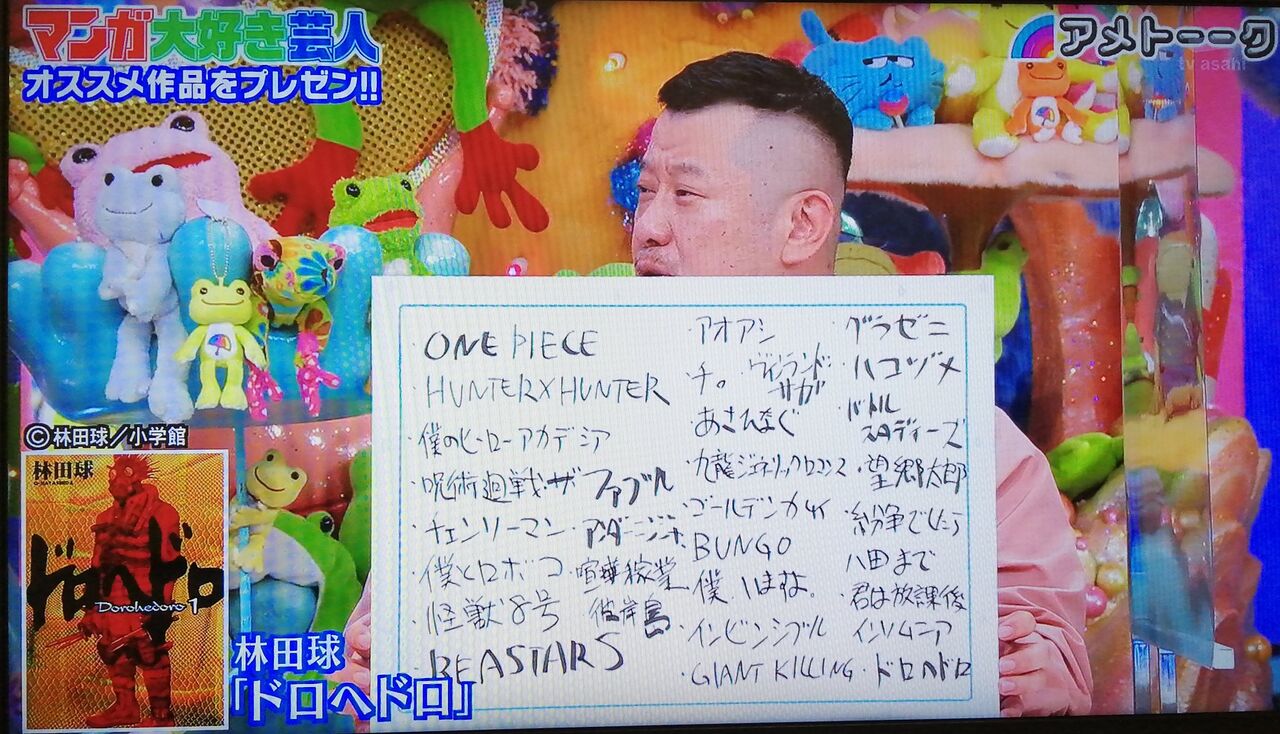 マンガ大好き芸人
オススメ作品をプレゼン!!
アメトーーク
tv asahi
・ONE PIECE
・HUNTER×HUNTER
・僕のヒーローアカデミア
・呪術廻戦・ザ ファブル
・チェンソーマン・アンダーニンジャ
・僕とロボコ・喧嘩稼業
・怪獣8号 彼岸島
・BEASTARS
・アオアシ
・チ。 ヴィンランド
サガ
・あさひなぐ
・九龍ジェネリックロマンス
・ゴールデンカムイ
・BUNGO
・僕 はまだ。
・インビンシブル
・GIANT KILLING
・グラゼニ
・ハコヅメ
・バトル
スタディーズ
・望郷太郎
・紛争でしたら
八田まで
・君は放課後
インソムニア
・ドロヘドロ
©林田球/小学館
林田球
Q・HAYASHIDA
ドロヘドロ
Dorohedoro 1
林田球
「ドロヘドロ」